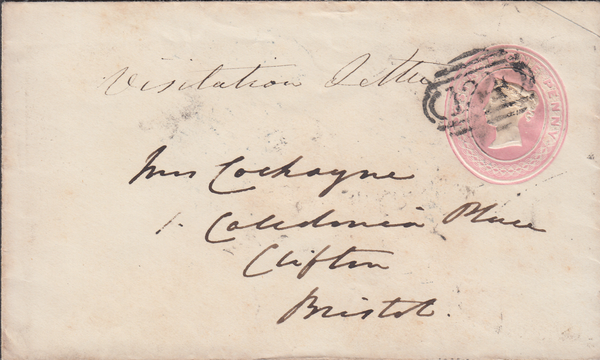 Visitation Letter
PENNY
Mrs Cockayne
1. Caledonia Place
Clifton
Bristol.